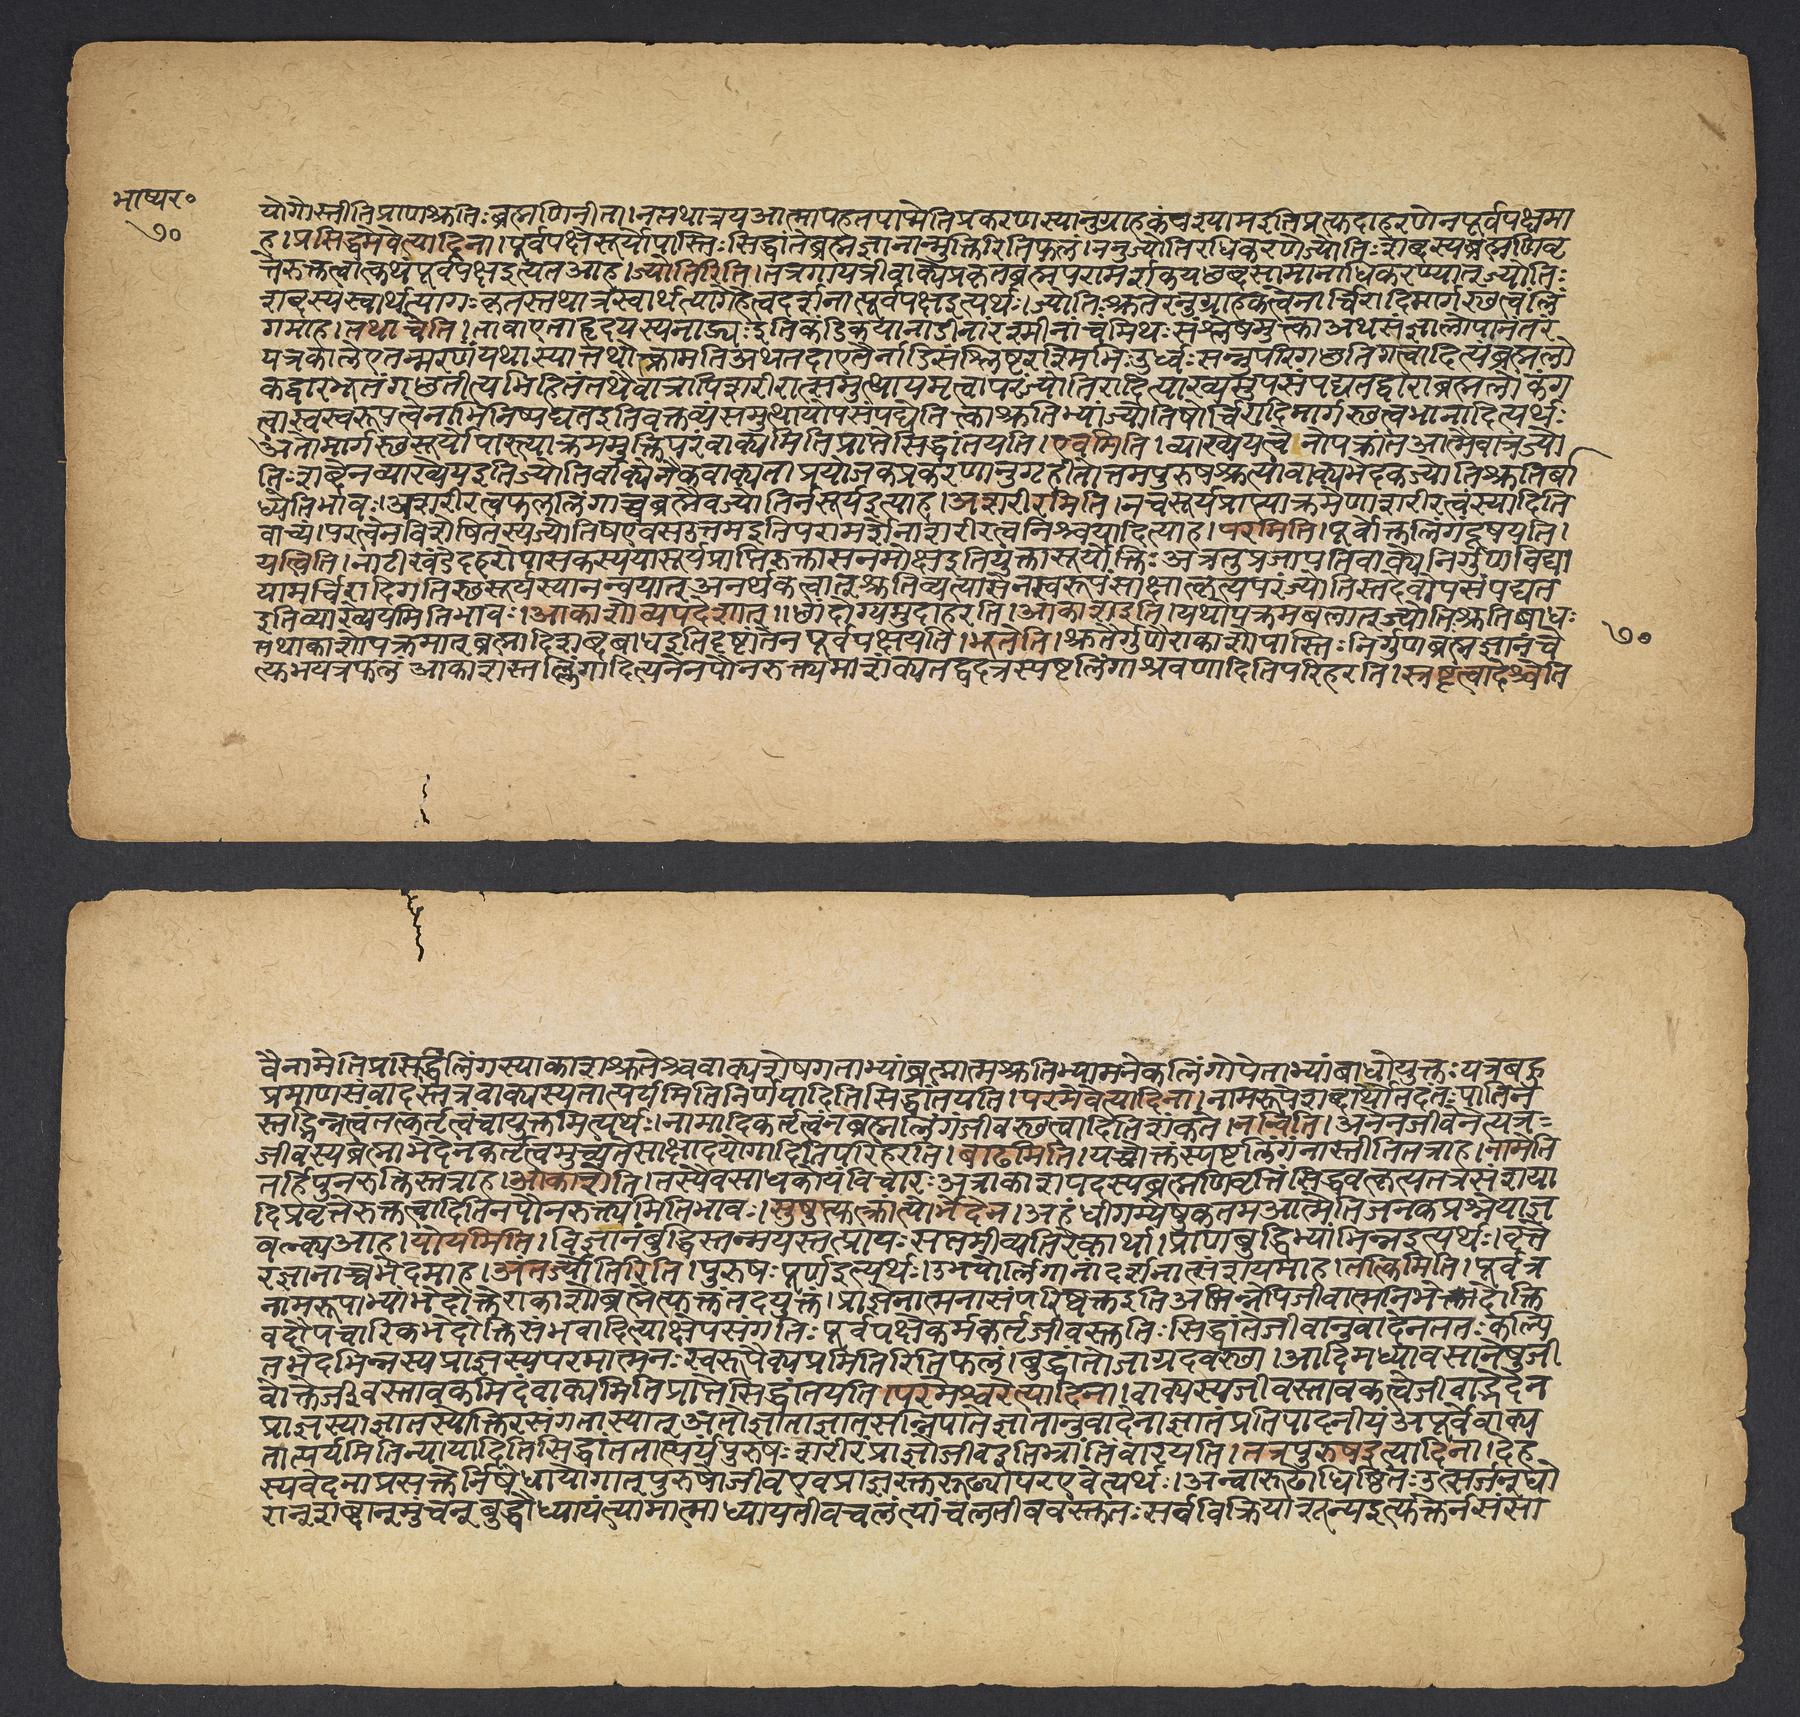 भाष्यर॰
७०
योगोस्तीतिप्राणश्रुतिःब्रह्मणिनीता।नतथात्रयआत्मापहतपाप्मेतिप्रकरणस्यानुग्राहकंपश्यामइतिप्रत्युदाहरणेनपूर्वपक्षमा
ह।प्रसिद्धमेवेत्यादिना।पूर्वपक्षेसूर्योपास्तिःसिद्धांतेब्रह्मज्ञानान्मुक्तिरितिफलं।ननुज्योतिरधिकरणेज्योतिःशब्दस्यब्रह्मणिवृ
त्तेरुक्तत्वात्कथंपूर्वपक्षइत्यतआह।ज्योतिरिति।तत्रगायत्रीवाक्येप्रकृतब्रह्मपरामर्शकयछब्दसामानाधिकरण्यात्ज्योतिः
शब्दस्यस्वार्थत्यागःकृतस्तथात्रस्वार्थत्यागेहेत्वदर्शनात्पूर्वपक्षइत्यर्थः।ज्योतिःश्रुतेरनुग्राहकत्वेनार्चिरादिमार्गस्छत्वलिं
गमाह।तथाचेति।तावाएताहृदयस्यनाड्यःइतिकंडिकयानाडीनांरश्मीनांचमिथःसंश्लेषमुक्त्वाअथसंज्ञालोपानंतरं
यत्रकालेएतन्मरणंयथास्यात्तथोत्क्रामतिअथतदाएतैर्नाडिसंश्लिष्टरश्मिभिःउर्ध्वःसन्नुपरिगछतिगत्वादित्यंब्रह्मलो
कद्वारभूतंगछतीत्यभिहितंतथैवात्रापिशरीरात्समुत्थायमृत्वापरंज्योतिरादित्याख्यमुपसंपद्यतद्वाराब्रह्मलोकंग
त्वास्वस्वरूपत्वेनाभिनिष्पद्यतइतिवक्तव्यंसमुत्थायोपसंपद्येतिक्त्वाश्रुतिभ्यांज्योतिषोर्चिरादिमार्गस्छत्वभानादित्यर्थः
अतोमार्गस्छसूर्योपास्त्याक्रममुक्तिपरंवाक्यमितिप्राप्तेसिद्धांतयति।एवमिति।व्याख्येयत्वेनोपक्रांतआत्मैवात्रज्यो
तिःशब्देनव्याख्येयइतिज्योतिर्वाक्येनैकवाक्यताप्रयोजकप्रकरणानुगृहीतोत्तमपुरुषश्रुत्यावाक्यभेदकज्योतिश्रुतिर्बा
ध्येतिभावः।अशरीरत्वफललिंगाच्चब्रह्मैवज्योतिर्नसूर्यइत्याह।अशरीरमिति।नचसूर्यप्राप्त्याक्रमेणाशरीरत्वंस्यादिति
वाच्यं।परत्वेनविशेषितस्यज्योतिषएवसउत्तमइतिपरामर्शेनाशरीरत्वनिश्चयादित्याह।परमिति।पूर्वोक्तलिंगंदूषयति।
यत्त्विति।नाटीखंडेदहरोपासकस्ययासूर्यप्राप्तिरुक्तासनमोक्षइतियुक्तासूर्योक्तिःअत्रतुप्रजापतिवाक्येनिर्गुणविद्या
यामर्चिरादिगतिस्छसूर्यस्यानन्वयात्अनर्थकत्वात्श्रुतिव्यत्यासेनस्वरूपंसाक्षात्कृत्यपरंज्योतिस्तदेवोपसंपद्यत
इतिव्याख्येयमितिभावः।आकाशोव्यपदेशात्।।छांदोग्यमुदाहरति।आकाशइति।यथोपक्रमबलात्ज्योतिश्रुतिबाधः
तथाकाशोपक्रमात्ब्रह्मादिशब्दबाधइतिदृष्टांतेनपूर्वपक्षयति।भूतेति।श्रुतेर्गुणैराकाशोपास्तिःनिर्गुणब्रह्मज्ञानंचे
त्युभयत्रफलं आकाशस्तल्लिंगादित्यनेनपौनरुक्त्यमाशंक्यतद्वदत्रस्पष्टलिंगाश्रवणादितिपरिहरति।स्रष्टृत्वादेश्चेति
७०
वैनामेतिप्रसिद्धिलिंगस्याकाशश्रुतेश्चवाक्यशेषगताभ्यांब्रह्मात्मश्रुतिभ्यामनेकलिंगोपेताभ्यांबाधोयुक्तःयत्रबहु
प्रमाणसंवादस्तत्रवाक्यस्यतात्पर्यमितिनिर्णयादितिसिद्धांतयति।परमेवेत्यादिना।नामरूपेशब्दार्थौतदंतःपातिन
स्तद्भिन्नत्वंतत्कर्तृत्वंचायुक्तमित्यर्थः।नामादिकर्तृत्वंनब्रह्मलिंगंजीवस्छत्वादितिशंकते।नन्विति।अनेनजीवेनेत्यत्र-
जीवस्यब्रह्माभेदेनकर्तृत्वमुच्यतेसाक्षादयोगादितिपरिहरति।बाढमिति।यच्चोक्तंस्पष्टलिंगंनास्तीतितत्राह।नामेति
तर्हिपुनरुक्तिस्तत्राह।आकाशेति।तस्यैवसाधकोयंविचारःअत्राकाशपदस्यब्रह्मणिवृत्तिंसिद्धवत्कृत्यतत्रसंशया
दिप्रवृत्तेरुक्तत्वादितिनपौनरुक्त्यमितिभावः।सुषुप्त्युत्क्रांत्योर्भेदेन।अहंधीगम्येषुकतमआत्मेतिजनकप्रश्नेयाज्ञ
वल्क्यआह।योयमिति।विज्ञानंबुद्धिस्तन्मयस्तत्प्रायःसप्तमीव्यतिरेकार्था।प्राणबुद्धिभ्यांभिन्नइत्यर्थः।वृत्ते
रज्ञानाच्चभेदमाह।अंतर्ज्योतिरिति।पुरुषःपूर्णइत्यर्थः।उभयोर्लिंगानांदर्शनात्संशयमाह।तत्किमिति।पूर्वत्र
नामरूपाभ्यांभेदोक्तेराकाशोब्रह्मेत्युक्तंतदयुक्तं।प्राज्ञेनात्मनासंपरिष्वक्तइतिअभिन्नेपिजीवात्मनिभेदोक्ति
वदौपचारिकभेदोक्तिसंभवादित्याक्षेपसंगतिःपूर्वपक्षेकर्मकर्तृजीवस्तुतिःसिद्धांतेजीवानुवादेनततःकल्पि
तभेदभिन्नस्यप्राज्ञस्यपरमात्मनःस्वरूपैक्यप्रमितिरितिफलं।बुद्धांतोजाग्रदवस्छा।आदिमध्यावसानेषुजी
वोक्तेजीवस्तावकमिदंवाक्यमितिप्राप्तेसिद्धांतयति।परमेश्वरेत्यादिना।वाक्यस्यजीवस्तावकत्वेजीवाद्भेदेन
प्राज्ञस्याज्ञातस्योक्तिरसंगतास्यात्अतोज्ञाताज्ञातसन्निपातेज्ञातानुवादेनाज्ञातंप्रतिपादनीयंअपूर्वेवाक्य
तात्पर्यमितिन्यायादितिसिद्धांततात्पर्यंपुरुषःशरीरंप्राज्ञोजीवइतिभ्रांतिंवारयति।तत्रपुरुषइत्यादिना।देह
स्यवेदनाप्रसक्तेर्निषेधायोगात्पुरुषोजीवएवप्राज्ञस्तुरूढ्यापरएवेत्यर्थः।अन्वारूढोधिष्ठितःउत्सर्जन्घो
रान्शब्दान्मुंचन्बुद्धौध्यायंत्यामात्माध्यायतीवचलंत्यांचलतीववस्तुतःसर्वविक्रियाशून्यइत्युक्तेर्नसंसा